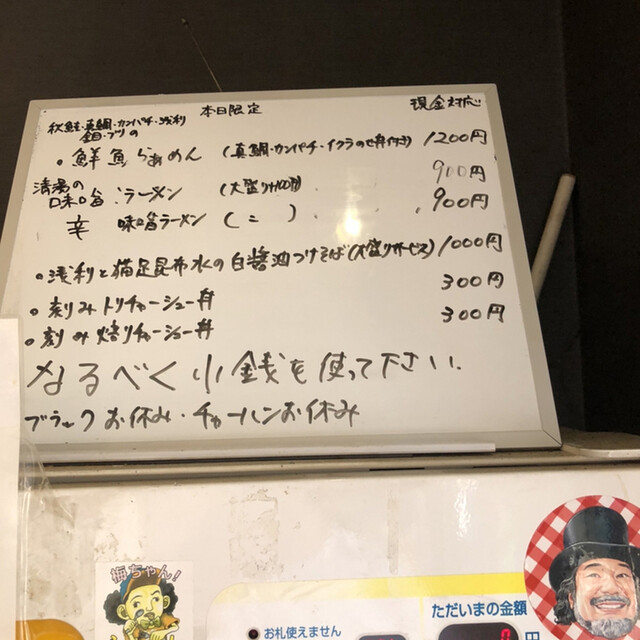 本日限定 現金対応
秋鮭・真鯛・カンパチ・浅利
金目・ブリの
・鮮魚らぁめん (真鯛・カンパチ・イクラのせ丼付き) 1200円
清湯の味噌ラーメン (大盛り100円) 900円
辛 味噌ラーメン ( 〃 ) 900円
・浅利と猫足昆布水の白醤油つけそば(大盛りサービス) 1000円
・刻みトリチャーシュー丼 300円
・刻み焙りチャーシュー丼 300円
なるべく小銭を使って下さい.
ブラックお休み・チャーハンお休み
梅ちゃん!
ただいまの金額
お札使えません
円